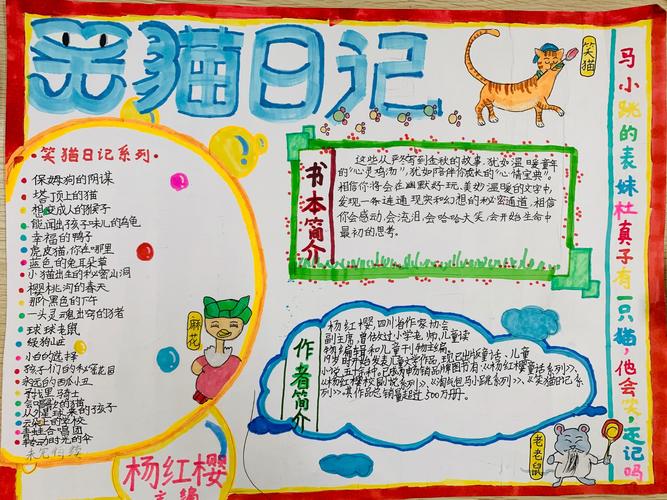 笑猫日记
笑猫日记系列
保姆狗的阴谋
塔顶上的猫
想变成人的猴子
能闻出孩子味儿的乌龟
幸福的鸭子
虎皮猫,你在哪里
蓝色的兔耳朵草
小猫出生的秘密山洞
樱桃沟的春天
那个黑色的下午
一头灵魂出窍的猪
球球老鼠
绿狗山庄
小白的选择
孩子们的秘密花园
永远的西瓜小丑
寻找黑骑士
会唱歌的猫
从外星球来的孩子
云朵上的学校
青蛙合唱团
转动时光的伞
未完待续
麻花
杨红樱
主编
笑猫
书本简介
这些从严冬写到金秋的故事,犹如温暖童年
的“心灵鸡汤”,犹如陪伴你成长的“心情宝典”。
相信你将会在幽默好玩、美妙温暖的文字中,
发现一条连通现实和幻想的秘密通道,相信
你会感动,会流泪,会哈哈大笑,会开始生命中
最初的思考。
作者简介
杨红樱,四川省作家协会
副主席,曾做过小学老师,儿童读
物编辑和儿童刊物主编。
19岁时开始发表儿童文学作品,现已出版童话、儿童
小说五十余种。已成为畅销品牌图书有:《杨红樱童话系列》、
《杨红樱校园小说系列》、《淘气包马小跳系列》、《笑猫日记系
列》,其作品总销量超过500万册。
马小跳的表妹杜真子有一只猫,他会笑,忘记吗
老老鼠